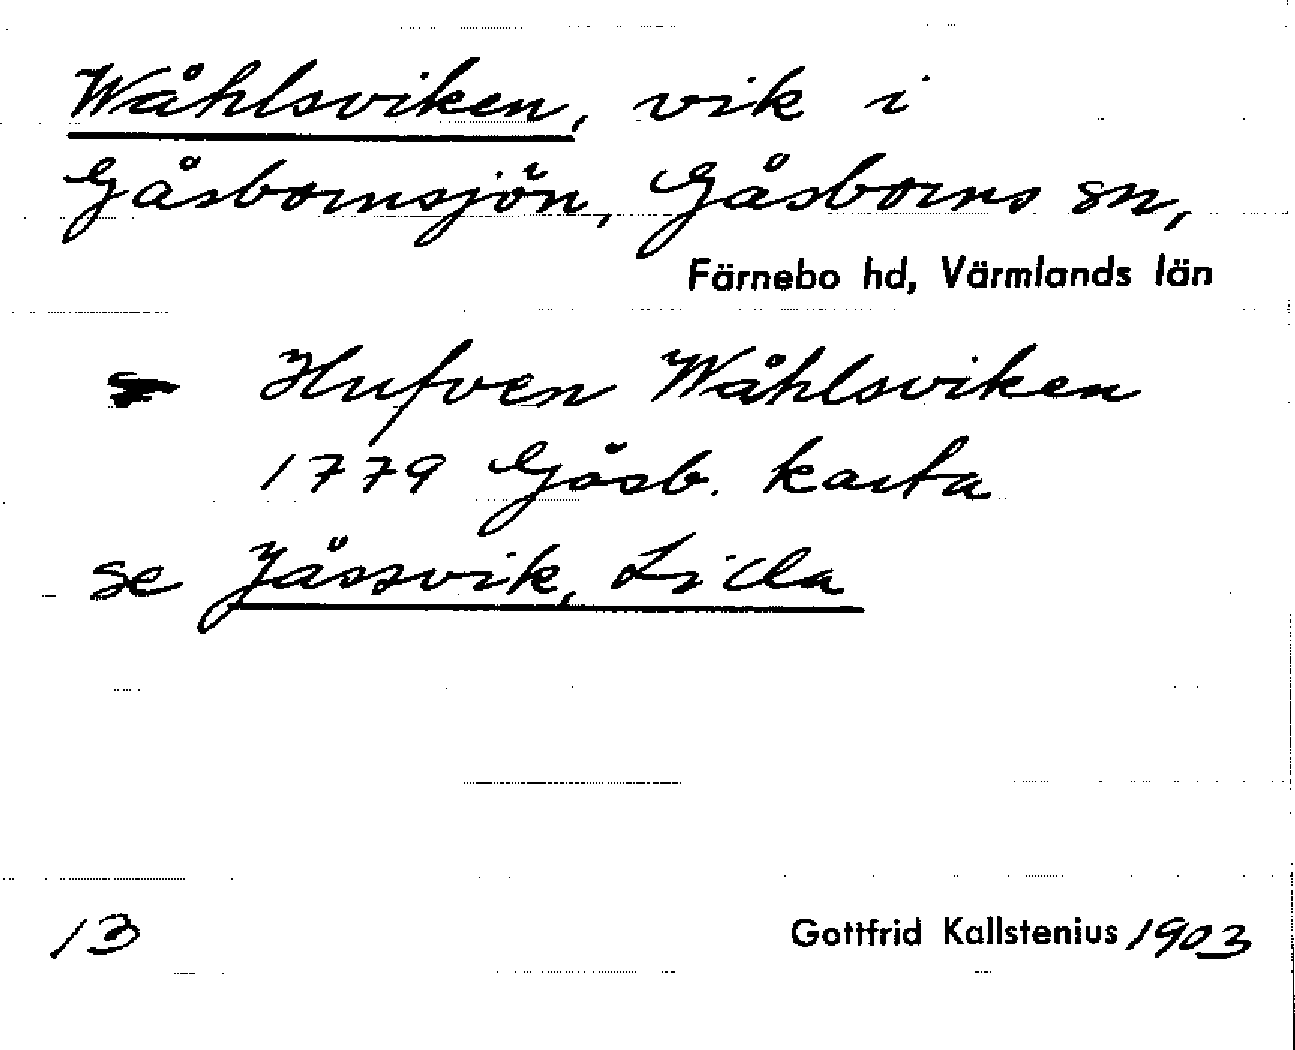 Wåhlsviken, vik i
Gåsbornsjön, Gåsborns sn,
Färnebo hd, Värmlands län
Hufven Wåhlsviken
1779 Gåsb. karta
se Jåssvik, Lilla
13 Gottfrid Kallstenius 1903